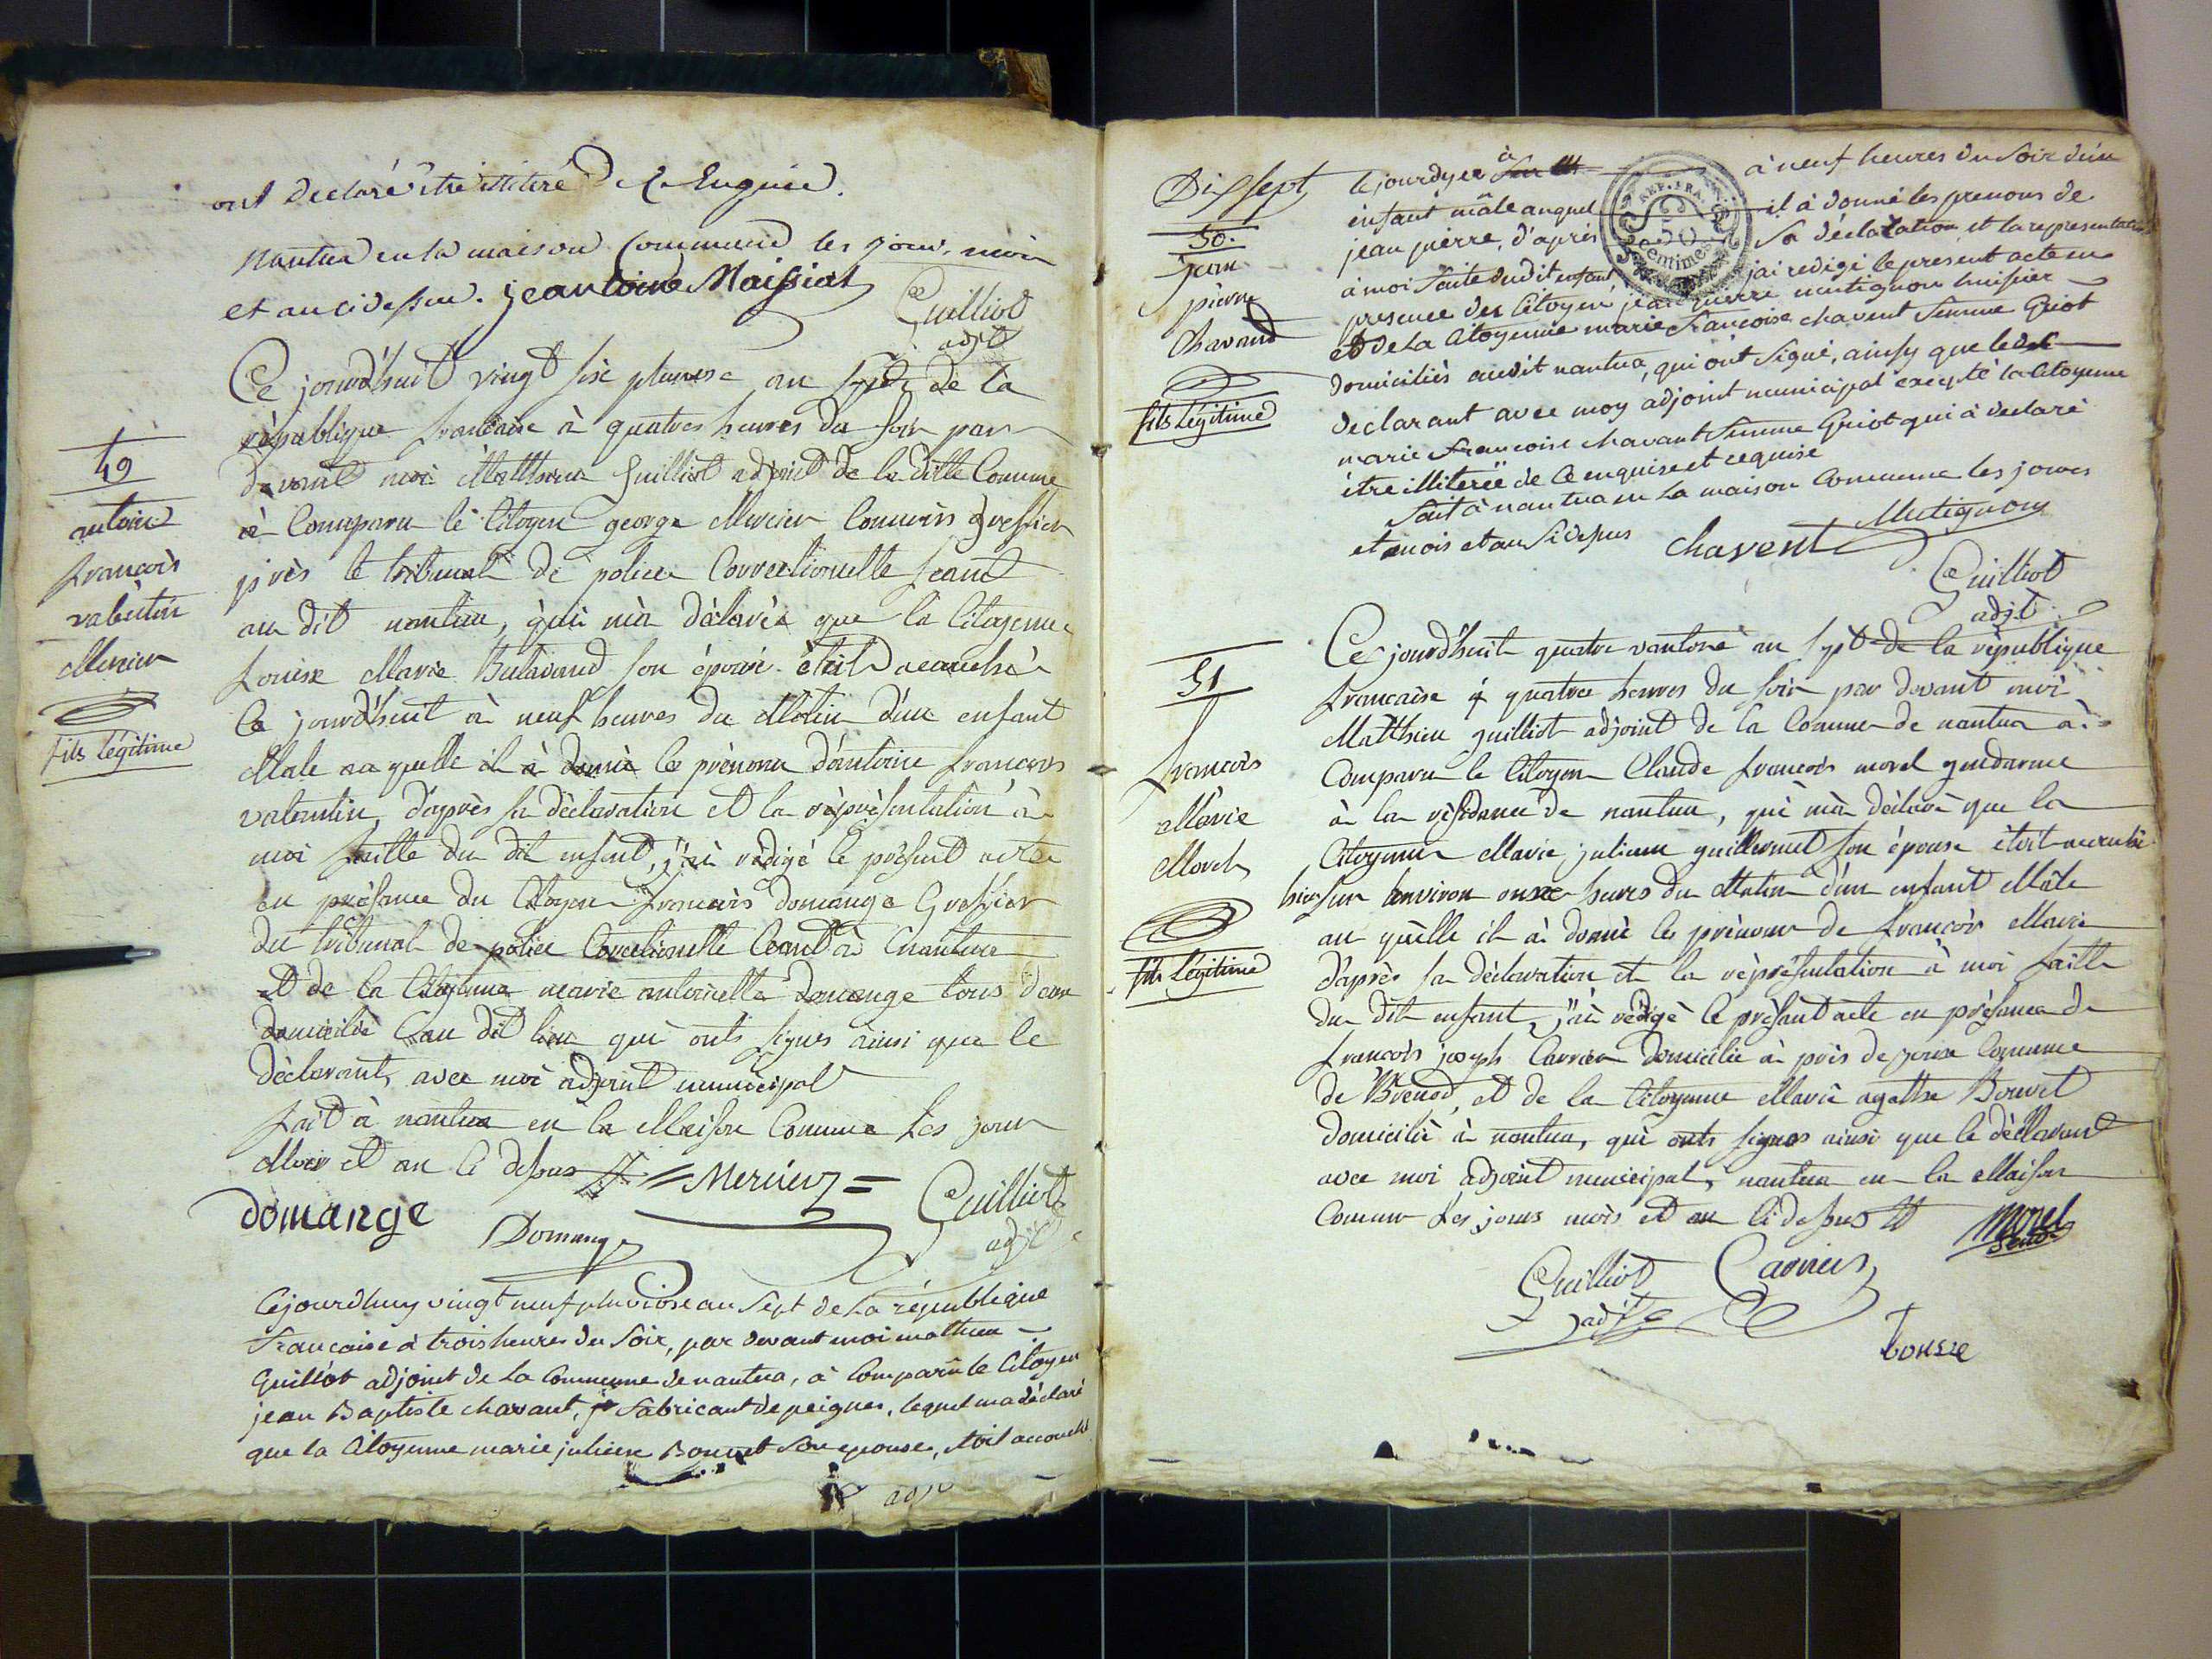 ont declaré être illiteré de Ce Enquise.
nantua en la maison Commune les jour, mois
et an cidessus. jeantoine Maissiat Guilliot
adjt
Ce jourd'huit vingt six pluviose an sept de la
république francaise à quatres heures du soir par
devant moi Matthieu guilliot adjoint de la ditte Comune
à Comparu le Citoyen george Mercier Commis greffier
près le tribunal de police Correctionelle seant
au dit nantua, qui m'à déclaré que la Citoyenne
Louise Marie son épouse étoit acouché
Ce jourd'huit à neuf heures du Matin d'un enfant
Male au quelle il à donné le prénom d'antoine francois
valentin, d'après sa déclaration et la réprésentation à
moi faitte du dit enfant, j'ai rédigé le présent acte
en présance du Citoyen francois domange Greffier
du tribunal de police Correctionelle Ceant à nantua
et de la Citoyenne marie antoinette domange tous deux
domicilié au dit lieu qui onts signes ainsi que le
déclarant, avec moi adjoint municipal
fait à nantua en la Maison Comune Les jour
Mois et an Ci dessus = Mercier =
domange Domange Guilliot
adjt
49
antoine
francois
valentin
Mercier
fils légitime
Cejourdhuy vingt neuf pluviose an Sept de La république
francaise à trois heures du Soir, par devant moi mathieu
Guilliot adjoint de La Commune de nantua, à Comparu le Citoyen
jean Baptiste chavant, fabricant de peignes, lequel ma déclaré
que la Citoyenne marie julienne Bonnet Son epouse, étoit accouché
adjt
Dissept
50.
Jean
pierre
Chavand
fils légitime
le jourdyer à à neuf heures du Soir d'un
enfant mâle auquel il à donné les prenoms de
jean pierre, d'après Sa déclaration et la representation
à moi faite dudit enfant jai redigé le present acte en
presence des Citoyens jean pierre mutignon huissier
et de La Citoyenne marie francoise chavent femme Griot
domiciliés audit nantua, qui ont Signé, ainsy que ledit
déclarant avec moy adjoint municipal excepté la Citoyenne
marie francoise chavant femme Griot qui à declaré
être illiterée de Ce enquise et requise
fait à nantua en La maison Commune les jours
et mois et an Sidessus chavent Mutignon
Guilliot
adjt.
REP. FRA.
50
Centimes
51
francois
Marie
Morel
fils légitime
Ce jourd'huit quatre vantose an sept de la république
francaise à quatre heures du soir par devant moi
Matthieu guilliot adjoint de la Comune de nantua à
Comparu le Citoyen Claude francois morel gendarme
à la résidance de nantua, qui m'à déclaré que la
Citoyenne Marie julienne guillermet son épouse étoit acouché
hier sur lenviron onze heures du Matin d'un enfant Mâle
au quelle il à donné les prénoms de francois Marie
d'après sa déclaration et la réprésentation à moi faitte
du dit enfant, j'ai rédigé le présant acte en présance de
francois joseph Carrier domicilié à près Comune
de Brenod, et de la Citoyenne Marie agathe Bouvet
domicilié à nantua, qui onts signes ainsi que le déclarant
avec moi adjoint municipal, nantua en la Maison
Comune Les jours mois et an Ci dessus Morel
Guilliot Carrier
adjt